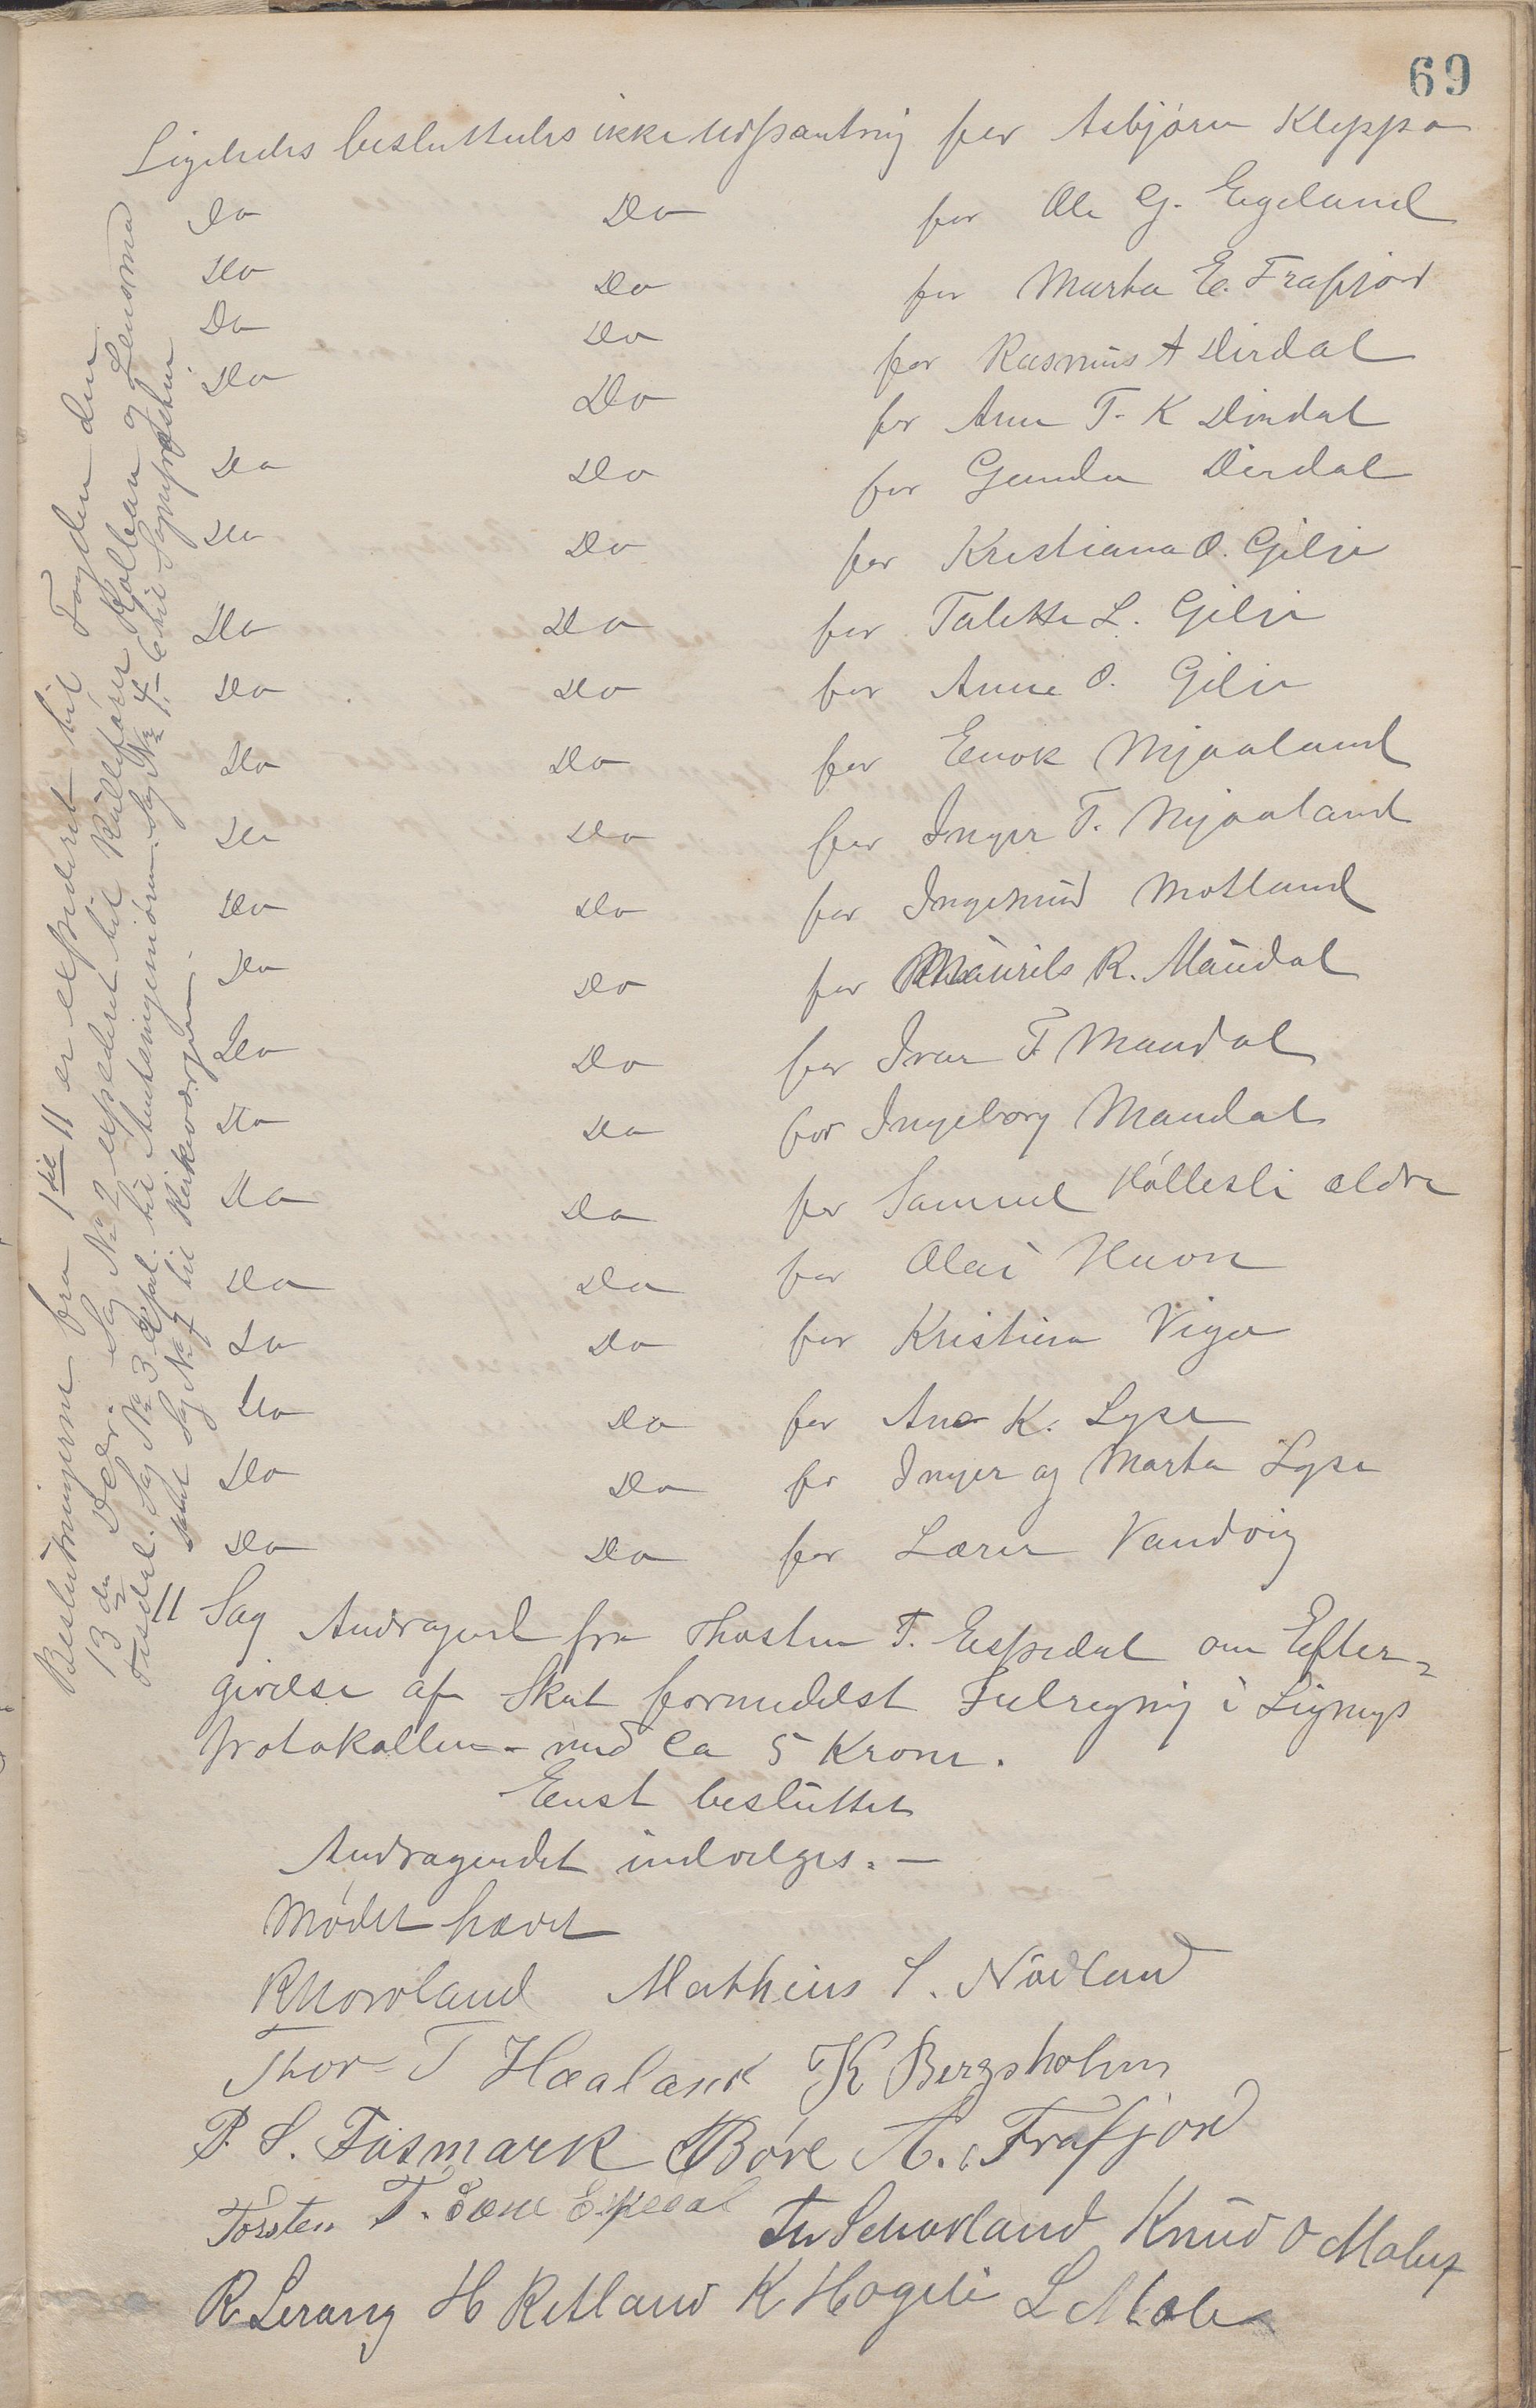 69
Ligeledes besluttedes ikke Udpantning for Asbjørn Kleppa
Do Do for Ole G. Eigeland
Do Do for Marta E. Frafjord
Do Do for Rasmus A Dirdal
Do Do for Ane T. K Dirdal
Do Do for Gunda Dirdal
Do Do for Kristiana O. Gilje
Do Do for Talette L. Gilje
Do Do for Anne O. Gilje
Do Do for Enok Mjaaland
Do Do for Inger T. Mjaaland
Do Do for Ingemund Motland
Do Do for Maurits R. Maudal
Do Do for Ivar T. Maudal
Do Do for Ingeborg Maudal
Do Do for Samuel Høllesli ældre
Do Do for Olai
Do Do for Kristina
Do Do for Ane K. Lyse
Do Do for Inger og Marta Lyse
Do Do for Lærer Vandvig
11 Sag Andragende fra Thosten T. Espedal om Efter-
givelse af Skat formedelst Feilregning i Lignings
protokollen - med ca 5 Kroner.
Eenst besluttet
Andragendet indvilges. -
Mødet hævet
Mathias S. Nådland
Thor T Haaland K Bergsholm
P. S. Fosmark Bore A. Frafjord
Torsten T. Espedal Knud O Molaug
R Lerang H Retland K Hogeli L
Beslutningerne fra 1 til 11 er expederet til Fogden den
13 den Decr. Sag No 2 expederet til Rullefører Kolbean og Lensmd
Tisdel. Sag No 3 Expd. til Amtsingeniøren. Sag No 4-6 til Sognepræsten
samt Sag No 7 til Kirkeværgen.